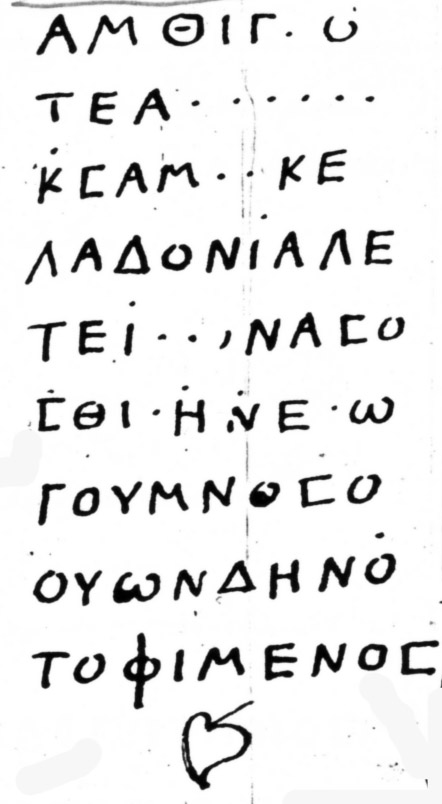 ΑΜΘΙΓ. Ο
ΤΕΑ.......
ΚΣΑΜ..ΚΕ
ΛΑΔΟΝΙΑΛΕ
ΤΕΙ..,ΝΑΣΟ
ΣΘΙ.Η.ΝΕ.ω
ΓΟΥΜΝΟΣΟ
ΟΥωΝΔΗΝΟ
ΤΟΦΙΜΕΝΟΣ